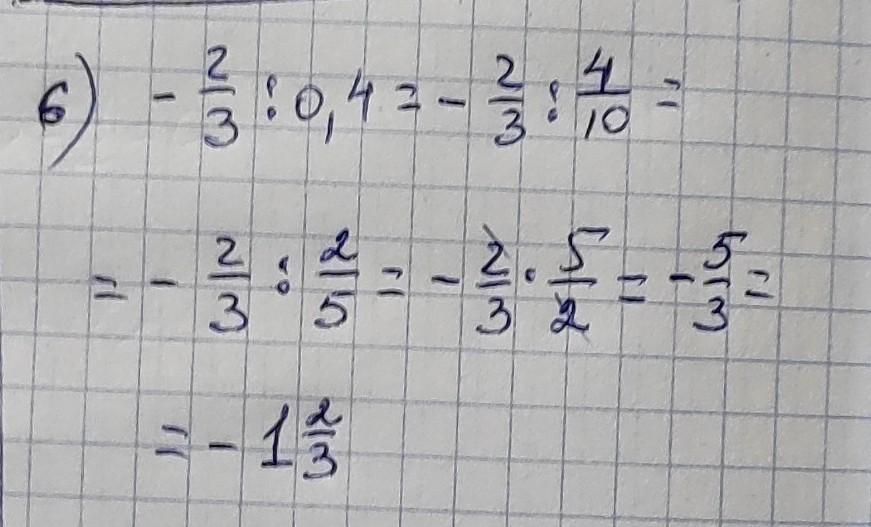 6) - 2/3 : 0,4 = - 2/3 : 4/10 =
= - 2/3 : 2/5 = - 2/3 · 5/2 = - 5/3 =
= - 1 2/3